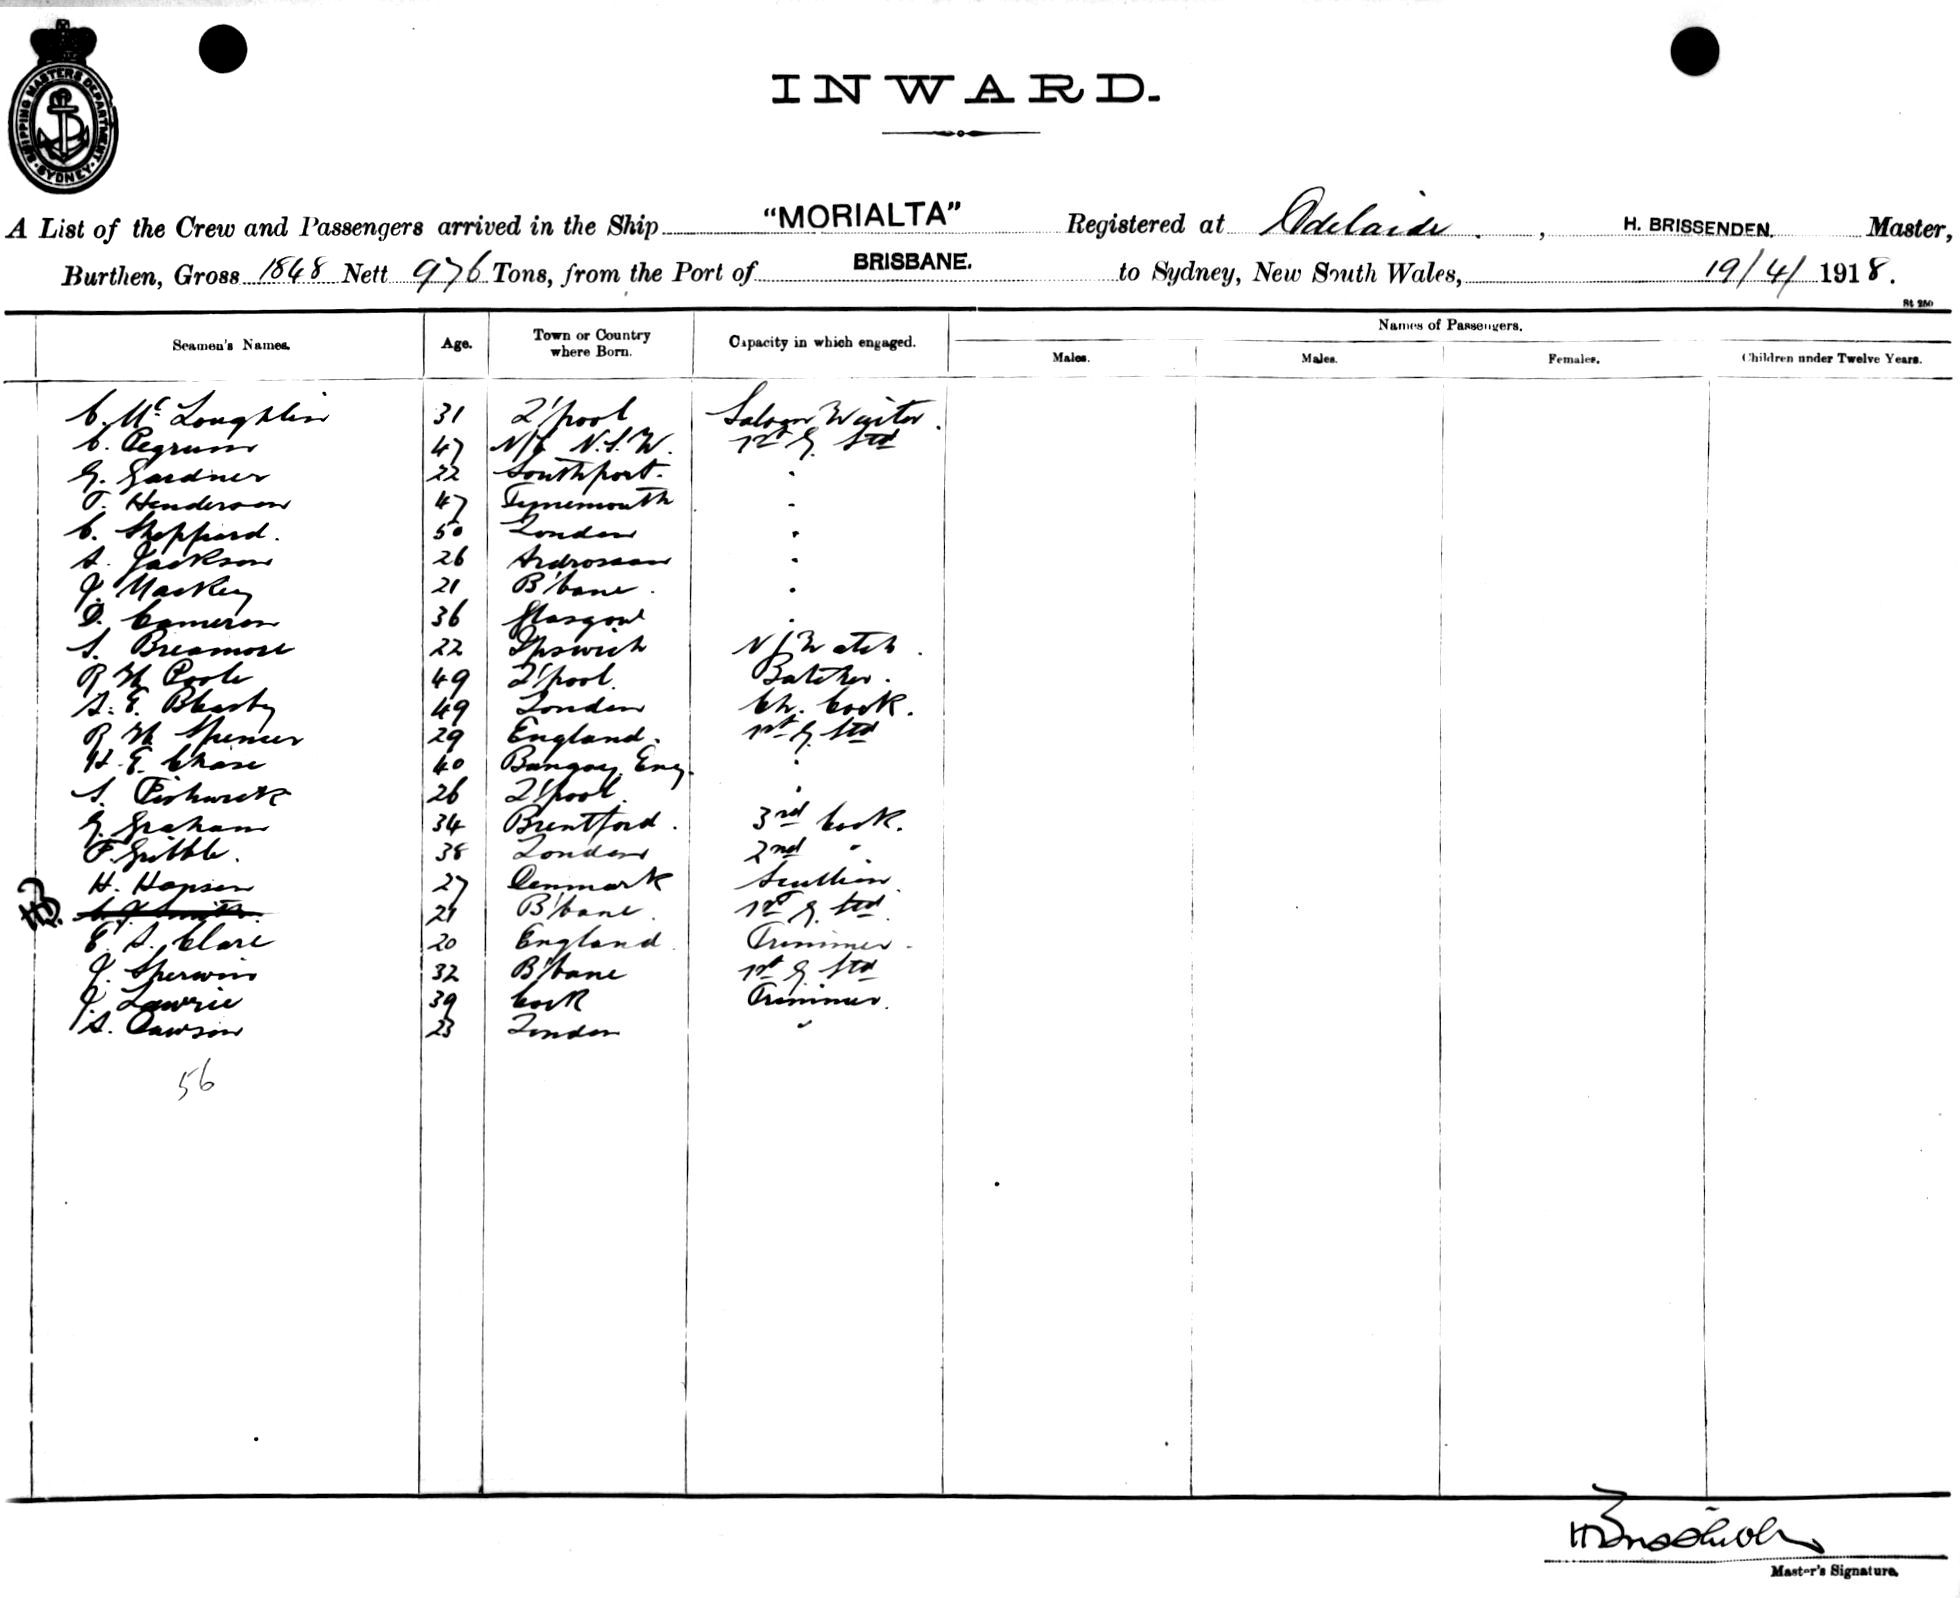 SHIPPING MASTERS DEPARTMENT
SYDNEY
INWARD.
A List of the Crew and Passengers arrived in the Ship "MORIALTA" Registered at Adelaide, H. BRISSENDEN. Master,
Burthen, Gross 1848 Nett 976 Tons, from the Port of BRISBANE. to Sydney, New South Wales, 19/4/1918.
St 250
Seamen's Names. Age. Town or Country where Born. Capacity in which engaged. Names of Passengers.
Males. Males. Females. Children under Twelve Years.
C. McLoughlin 31 L'pool Saloon Waiter.
C. Pegrum 47 N/C N.S.W. 1st G. Std
G. Gardner 22 Southport. "
T. Henderson 47 Tynemouth "
C. Sheppard. 50 London "
A. Jackson 26 Ardrossan "
J. Mackey 21 B'bane. "
D. Cameron 36 Glasgow "
S. Breamore 22 Ipswich N/Watch.
R W Poole 49 L'pool. Butcher.
A. E. 49 London Ch. Cook.
R W Spencer 29 England. 1st G. Std
H. E. Chase 40 Bungay. Eng. "
S. Fishwick 26 L'pool. "
G. Graham 34 Brentford. 3rd Cook.
F. Gribble. 38 London 2nd "
H. Hansen 27 Denmark Scullion
HB. C. J. Smith 21 B'bane. 1st G. Std
E. A. Clare 20 England. Trimmer.
J. Sherwin 32 B'bane 1st G Std
J. Lawrie 39 Cork Trimmer.
A. Dawson 23 London "
56
Master's Signature.